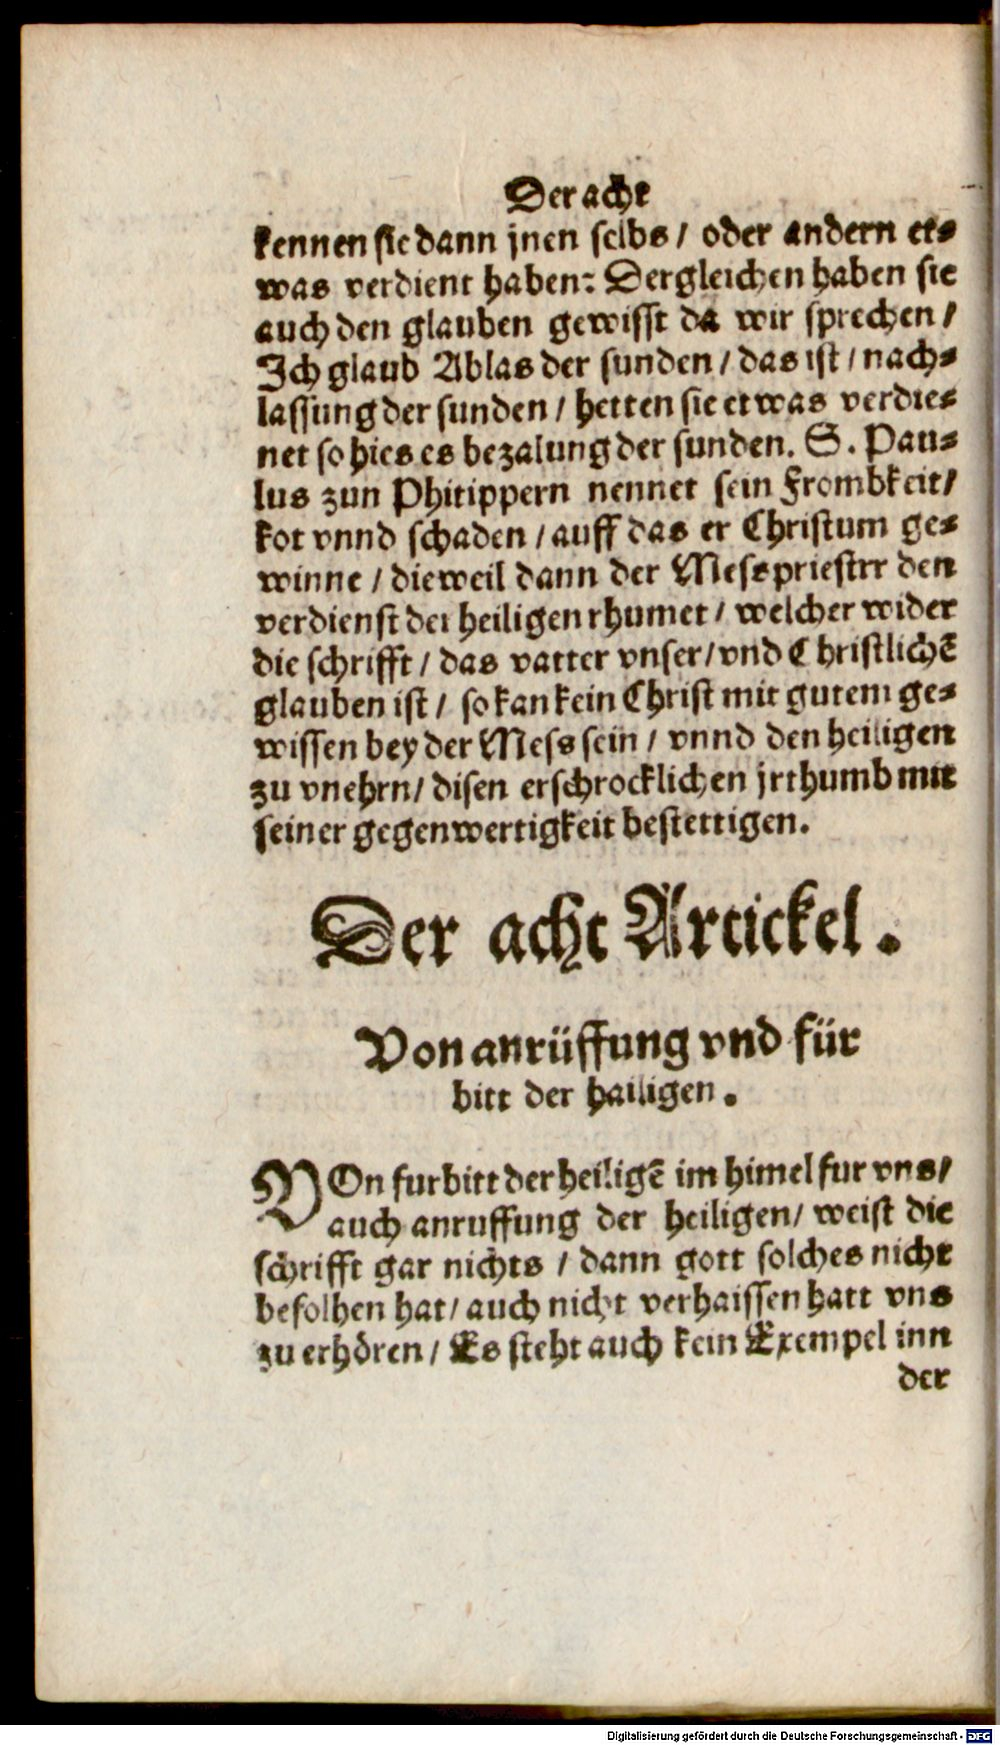 Der acht
kennen sie dann jnen selbs / oder andern et⸗
was verdient haben: Dergleichen haben sie
auch den glauben gewisst da wir sprechen /
Ich glaub Ablas der sunden / das ist / nach⸗
lassung der sunden / hetten sie etwas verdie⸗
net so hies es bezalung der sunden. S. Pau⸗
lus zun Phitippern nennet sein Frombkeit /
kot vnnd schaden / auff das er Christum ge⸗
winne / dieweil dann der Messpriestrr den
verdienst der heiligen rhumet / welcher wider
die schrifft / das vatter vnser / vnd Christlichē
glauben ist / so kan kein Christ mit gutem ge⸗
wissen bey der Mess sein / vnnd den heiligen
zu vnehrn / disen erschrocklichen jrthumb mit
seiner gegenwertigkeit bestettigen.
Der acht Artickel.
Von anrüffung vnd für
bitt der hailigen.
VOn furbitt der heiligē im himel fur vns /
auch anruffung der heiligen / weist die
schrifft gar nichts / dann gott solches nicht
befolhen hat / auch nicht verhaissen hatt vns
zu erhören / Es steht auch kein Exempel inn
der
Digitalisierung gefördert durch die Deutsche Forschungsgemeinschaft - DFG